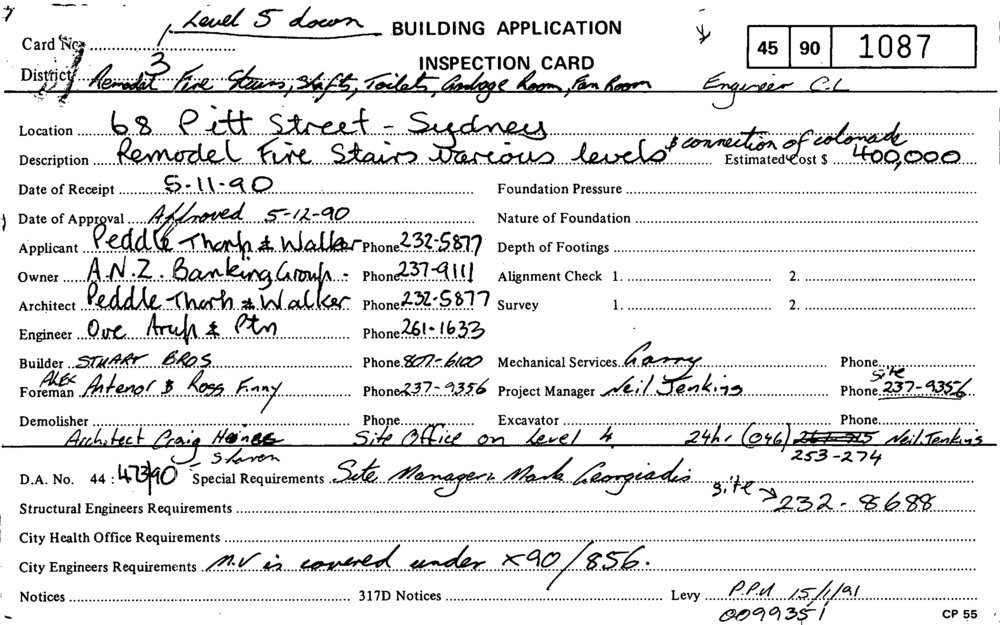 Level 5 down
BUILDING APPLICATION
Card No. 45 90 1087
INSPECTION CARD
District 3
Remodel Fire Stairs, Shafts, Toilets, Garbage Room, Fan Room Engineer C.L
Location 68 Pitt Street - Sydney
& connection of colonade
Description Remodel Fire Stairs various levels Estimated Cost $ 400,000
Date of Receipt 5-11-90 Foundation Pressure
Date of Approval Approved 5-12-90 Nature of Foundation
Applicant Peddle Thorp & Walker Phone 232-5877 Depth of Footings
Owner A.N.Z. Banking Group. Phone 237-9111 Alignment Check 1. 2.
Architect Peddle Thorp & Walker Phone 232-5877 Survey 1. 2.
Engineer Ove Arup & Ptn Phone 261-1633
Builder STUART BROS Phone 807-6100 Mechanical Services Garry Phone
ALEX Site
Foreman Antenor & Ross Finny Phone 237-9356 Project Manager Neil Jenkins Phone 237-9356
Demolisher Phone Excavator Phone
Architect Craig Site Office on Level 4 24hr (046) Neil Jenkins
253-274
D.A. No. 44 : 473/90 Special Requirements Site Manager: Mark Georgiadis
site → 232-8688
Structural Engineers Requirements
City Health Office Requirements
City Engineers Requirements M.V is covered under X90/856.
Notices 317D Notices Levy P.P.N 15/1/91
0099351 CP 55